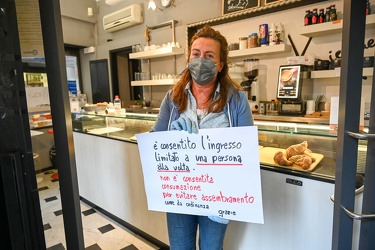 è consentito l'ingresso
limitato a una persona
alla volta.
non è consentita
consumazione
per evitare assembramento
come da ordinanza
grazie